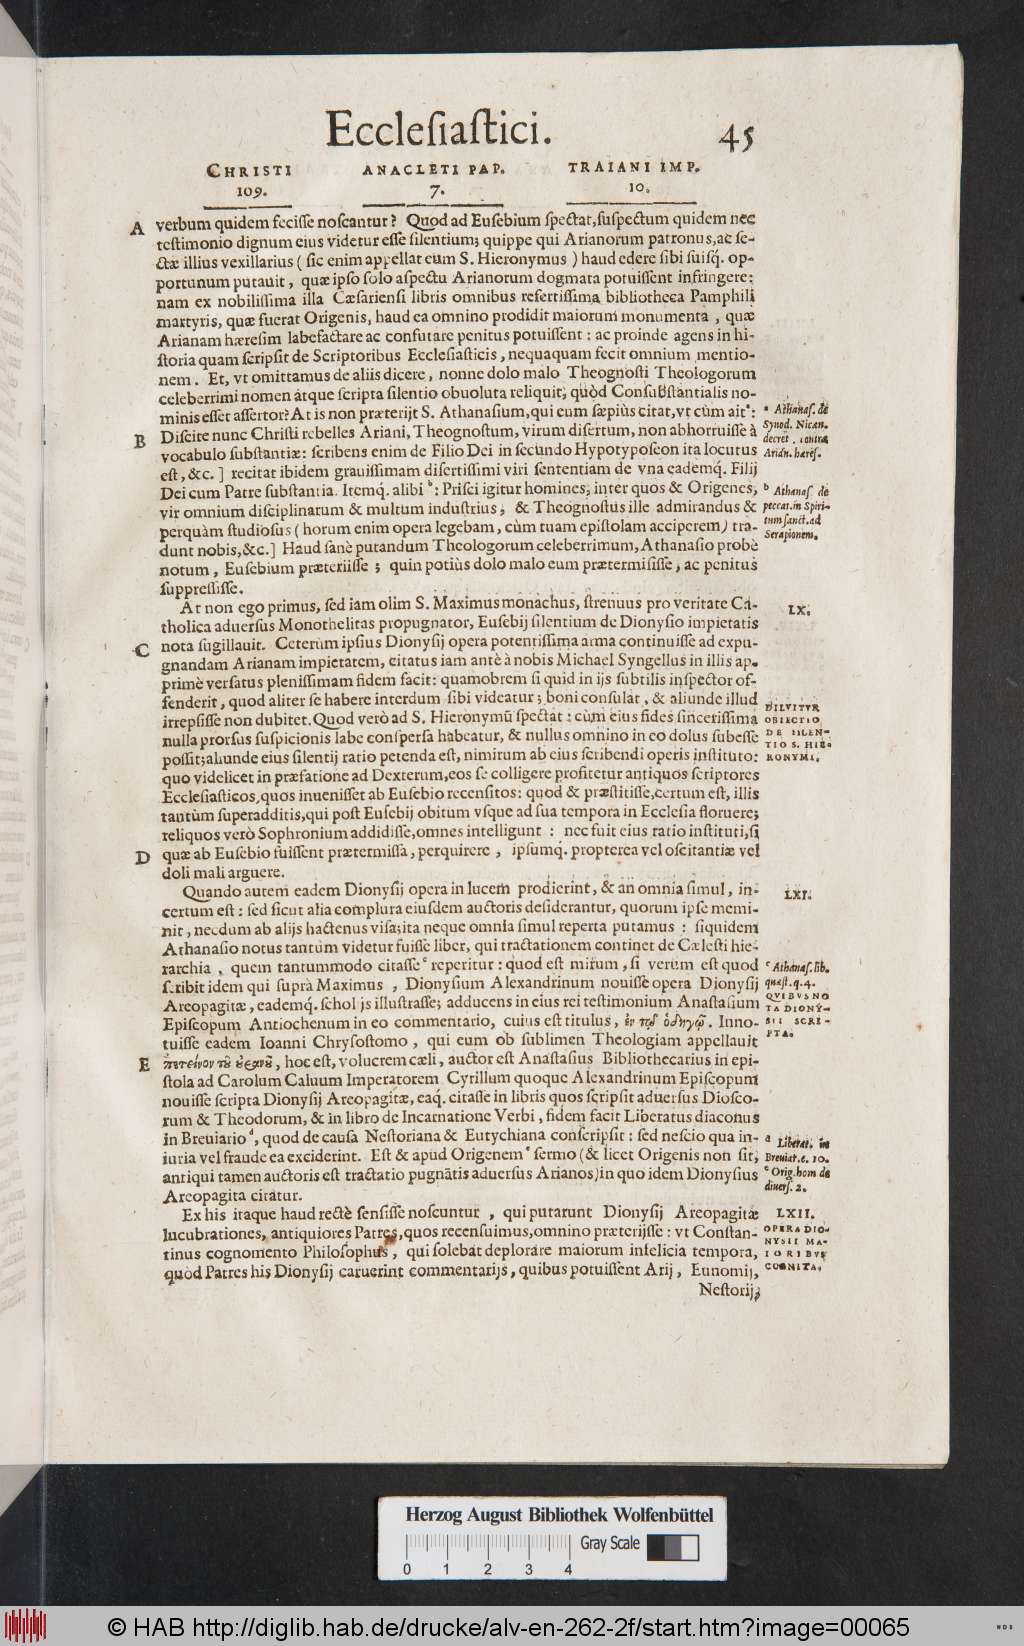 Eccleſiaſtici. 45
CHRISTI ANACLETI PAP. TRAIANI IMP.
109. 7. 10.
A verbum quidem feciſſe noſcantur? Quod ad Euſebium ſpectat, ſuſpectum quidem nec
teſtimonio dignum eius videtur eſſe ſilentium; quippe qui Arianorum patronus, ac ſe-
ctæ illius vexillarius (ſic enim appellat eum S. Hieronymus) haud edere ſibi ſuiſq́. op-
portunum putauit, quæ ipſo ſolo aſpectu Arianorum dogmata potuiſſent infringere:
nam ex nobiliſſima illa Cæſarienſi libris omnibus refertiſſima bibliotheca Pamphili
martyris, quæ fuerat Origenis, haud ea omnino prodidit maiorum monumenta, quæ
Arianam hæreſim labefactare ac confutare penitus potuiſſent: ac proinde agens in hi-
ſtoria quam ſcripſit de Scriptoribus Eccleſiaſticis, nequaquam fecit omnium mentio-
nem. Et, vt omittamus de aliis dicere, nonne dolo malo Theognoſti Theologorum
celeberrimi nomen atque ſcripta ſilentio obuoluta reliquit, quòd Conſubſtantialis no-
minis eſſet aſſertor? At is non præterijt S. Athanaſium, qui eum ſæpiùs citat, vt cùm ait ᵃ:
B Diſcite nunc Chriſti rebelles Ariani, Theognoſtum, virum diſertum, non abhorruiſſe à
vocabulo ſubſtantiæ: ſcribens enim de Filio Dei in ſecundo Hypotypoſeon ita locutus
eſt, &c.] recitat ibidem grauiſſimam diſertiſſimi viri ſententiam de vna eademq́. Filij
Dei cum Patre ſubſtantia. Itemq́. alibi ᵇ: Priſci igitur homines, inter quos & Origenes,
vir omnium diſciplinarum & multum induſtrius, & Theognoſtus ille admirandus &
perquàm ſtudioſus (horum enim opera legebam, cùm tuam epiſtolam acciperem) tra-
dunt nobis, &c.] Haud ſanè putandum Theologorum celeberrimum, Athanaſio probè
notum, Euſebium præteriiſſe; quin potiùs dolo malo eum prætermiſiſſe, ac penitus
ſuppreſſiſſe.
ᵃ Athanaſ. de
Synod. Nican.
decret. contra
Arian. hæreſ.
ᵇ Athanaſ. de
peccat. in Spiri-
tum ſanct. ad
Serapionem.
At non ego primus, ſed iam olim S. Maximus monachus, ſtrenuus pro veritate Ca-
tholica aduerſus Monothelitas propugnator, Euſebij ſilentium de Dionyſio impietatis
C nota ſugillauit. Ceterùm ipſius Dionyſij opera potentiſſima arma continuiſſe ad expu-
gnandam Arianam impietatem, citatus iam antè à nobis Michael Syngellus in illis ap-
primè verſatus pleniſſimam fidem facit: quamobrem ſi quid in ijs ſubtilis inſpector of-
fenderit, quod aliter ſe habere interdum ſibi videatur; boni conſulat, & aliunde illud
irrepſiſſe non dubitet. Quod verò ad S. Hieronymū ſpectat: cùm eius fides ſinceriſſima
nulla prorſus ſuſpicionis labe conſperſa habeatur, & nullus omnino in eo dolus ſubeſſe
poſſit; aliunde eius ſilentij ratio petenda eſt, nimirum ab eius ſcribendi operis inſtituto:
quo videlicet in præfatione ad Dexterum, eos ſe colligere profitetur antiquos ſcriptores
Eccleſiaſticos, quos inueniſſet ab Euſebio recenſitos: quod & præſtitiſſe, certum eſt, illis
tantùm ſuperadditis, qui poſt Euſebij obitum vſque ad ſua tempora in Eccleſia floruere;
reliquos verò Sophronium addidiſſe, omnes intelligunt: nec fuit eius ratio inſtituti, ſi
D quæ ab Euſebio fuiſſent prætermiſſa, perquirere, ipſumq́. propterea vel oſcitantiæ vel
doli mali arguere.
LX.
DILVITVR
OBIECTIO
DE SILEN-
TIO S. HIE-
RONYMI.
Quando autem eadem Dionyſij opera in lucem prodierint, & an omnia ſimul, in-
certum eſt: ſed ſicut alia complura eiuſdem auctoris deſiderantur, quorum ipſe memi-
nit, necdum ab alijs hactenus viſa; ita neque omnia ſimul reperta putamus: ſiquidem
Athanaſio notus tantùm videtur fuiſſe liber, qui tractationem continet de Cæleſti hie-
rarchia, quem tantummodo citaſſe ᶜ reperitur: quod eſt mirum, ſi verum eſt quod
ſcribit idem qui ſuprà Maximus, Dionyſium Alexandrinum nouiſſe opera Dionyſij
Areopagitæ, eademq́. ſcholijs illuſtraſſe; adducens in eius rei teſtimonium Anaſtaſium
Epiſcopum Antiochenum in eo commentario, cuius eſt titulus, ἐν τῷ ὁδηγῷ. Inno-
tuiſſe eadem Ioanni Chryſoſtomo, qui eum ob ſublimen Theologiam appellauit
E πετεινὸν τοῦ οὐρανοῦ, hoc eſt, volucrem cæli, auctor eſt Anaſtaſius Bibliothecarius in epi-
ſtola ad Carolum Caluum Imperatorem Cyrillum quoque Alexandrinum Epiſcopum
nouiſſe ſcripta Dionyſij Areopagitæ, eaq́. citaſſe in libris quos ſcripſit aduerſus Dioſco-
rum & Theodorum, & in libro de Incarnatione Verbi, fidem facit Liberatus diaconus
in Breuiario ᵈ, quod de cauſa Neſtoriana & Eutychiana conſcripſit: ſed neſcio qua in-
iuria vel fraude ea exciderint. Eſt & apud Origenem ᵉ ſermo (& licet Origenis non ſit,
antiqui tamen auctoris eſt tractatio pugnātis aduerſus Arianos) in quo idem Dionyſius
Areopagita citatur.
LXI.
ᶜ Athanaſ. lib.
quæſt. q. 4.
QVIBVS NO
TA DIONY-
SII SCRI-
PTA.
ᵈ Liberat. in
Breuiar. c. 10.
ᵉ Orig. hom de
diuerſ. 2.
Ex his itaque haud rectè ſenſiſſe noſcuntur, qui putarunt Dionyſij Areopagitæ
lucubrationes, antiquiores Patres, quos recenſuimus, omnino præterijſſe: vt Conſtan-
tinus cognomento Philoſophus, qui ſolebat deplorare maiorum infelicia tempora,
quòd Patres his Dionyſij caruerint commentarijs, quibus potuiſſent Arij, Eunomij,
Neſtorij,
LXII.
OPERA DIO-
NYSII MA-
IORIBVS
COGNITA.
Herzog August Bibliothek Wolfenbüttel
Gray Scale
0 1 2 3 4
© HAB http://diglib.hab.de/drucke/alv-en-262-2f/start.htm?image=00065